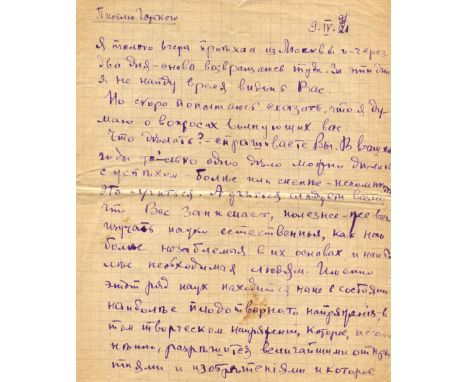 Письмо Горького
9. IV. 21
Я только вчера приехал из Москвы и через
два дня - снова возвращаюсь туда. За эти дни
я не найду время видеть Вас.
Но скоро попытаюсь сказать, что я ду-
маю о вопросах волнующих вас.
Что делать? - спрашиваете Вы. В ваши
годы только одно дело можно делать
с успехом - более или менее -
это - учиться. А учиться следует всему,
что Вас занимает, полезнее - всего
изучать науки естественныя, как наи
более незыблемыя в их основах и наиб
лее необходимыя людям. Именно
этот ряд наук находится ныне в состоянии
наиболее плодотворнаго напряжения - в
том творческом напряжении, которое, несом
ненно, разрешится величайшими откры
тиями и изобретениями и которое